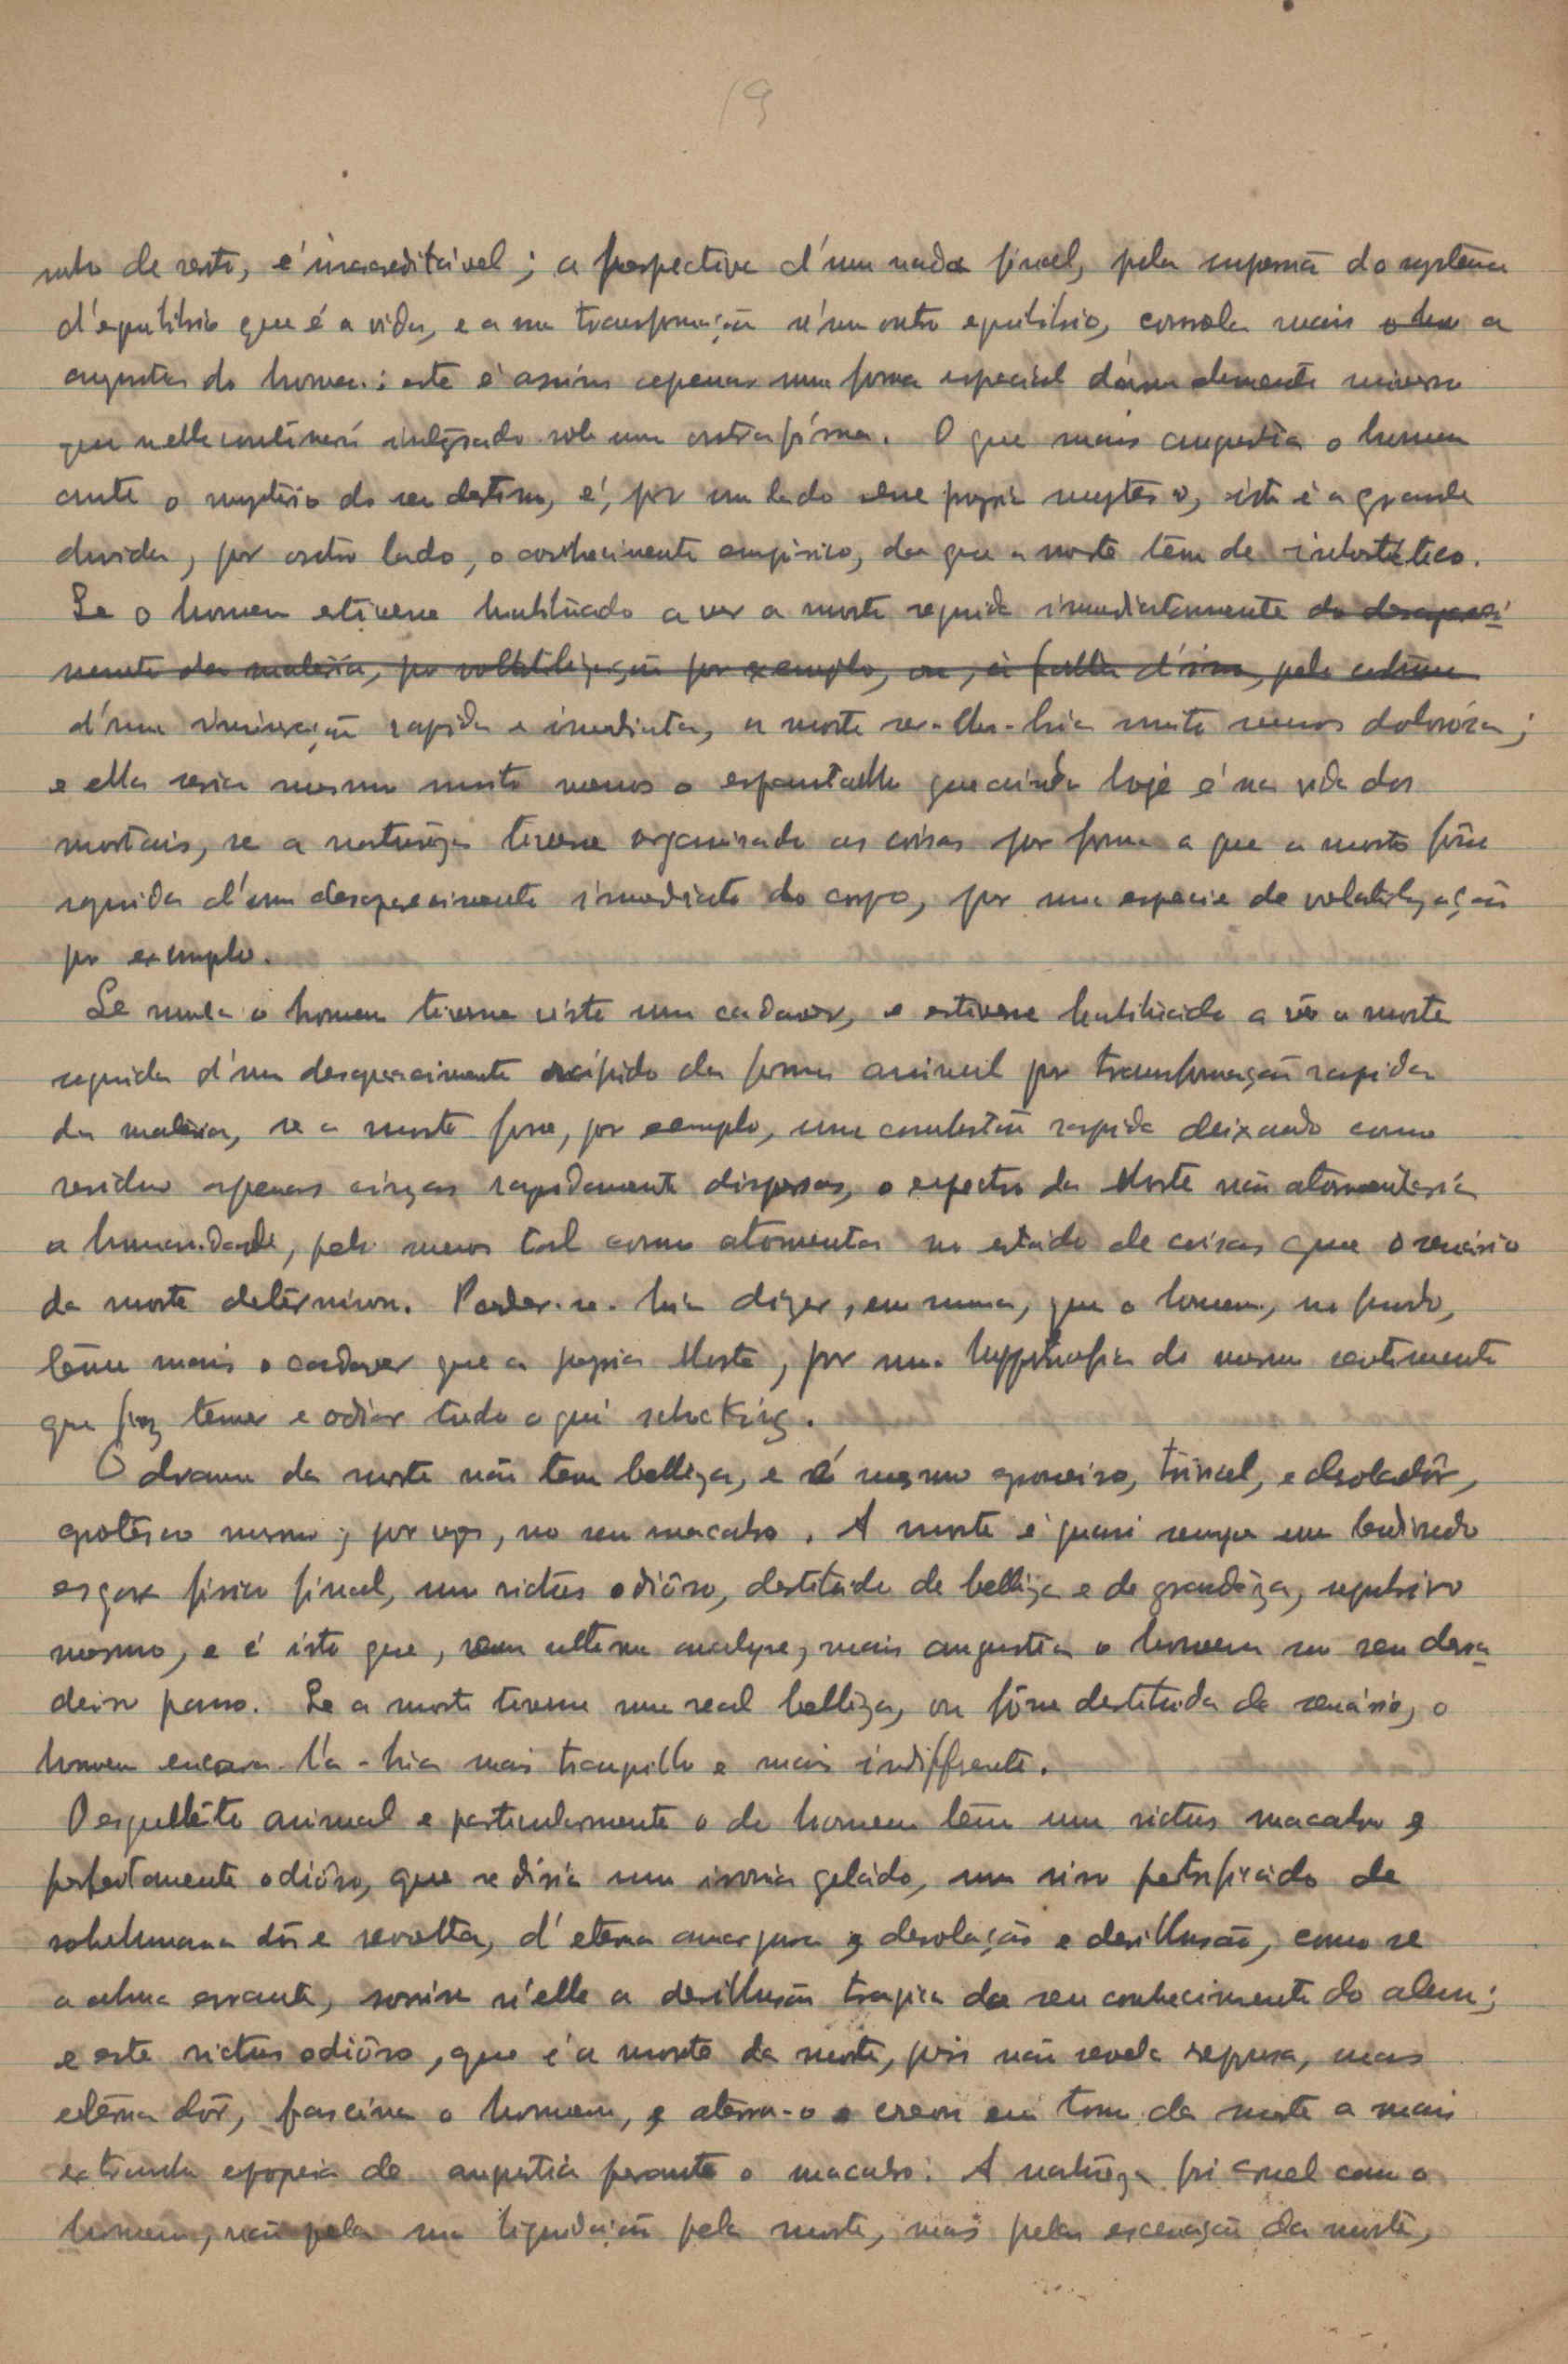 19
de resto, é inacreditável; a perspectiva d'um nada final, pela do systema
d'equilibrio que é a vida, e a sua transformação n'um outro equilibrio, consola mais a
angustia do homem: este é assim apenas uma forma especial do universo
que n'elle continuará integrado sob uma outra fórma. O que mais angustia o homem
ante o mysterio do seu destino, é, por um lado esse proprio mysterio, isto é a grande
duvida, por outro lado, o conhecimento empirico, do que a morte tem de inestético.
Se o homem estivesse habituado a ver a morte seguida immediatamente do desapareci-
mento da materia, por volatilização por exemplo, ou, á falta d'isso, pelo
d'uma rapida e imediata, a morte ser-lhe-hia muito menos dolorósa;
e ella seria mesmo muito menos o espantalho que ainda hoje é na vida dos
mortais, se a natureza tivesse organisado as coisas por forma a que a morte fôsse
seguida d'um desaparecimento immediato do corpo, por uma especie de volatilização
por exemplo.
Se nunca o homem tivesse visto um cadaver, e estivesse habituado a vêr a morte
seguida d'um desaparecimento rápido da forma animal por transformação rapida
da materia, se a morte fosse, por exemplo, uma combustão rapida deixando como
residuo apenas cinzas rapidamente dispersas, o espectro da Morte não atormentaria
a humanidade, pelo menos tal como atormenta no estado de coisas que o scenário
da morte determinou. Poder-se-hia dizer, em suma, que o homem, no fundo,
tême mais o cadaver que a propria Morte, por uma hyppertrofia do mesmo sentimento
que faz temer e odiar tudo o que schocking.
O drama da morte não tem belleza, e é mesmo grosseiro, trivial, e desoladôr,
grotesco mesmo; por vezes, no seu macabro. A morte é quasi sempre um hediondo
esgare fisico final, um rictus odiôso, destituido de belleza e de grandêza, repulsivo
mesmo, e é isto que, em ultima analyse, mais angustia o homem no seu derra-
deiro passo. Se a morte tivesse uma real belleza, ou fôsse destituida de scenário, o
homem encara-l'a-hia mais tranquillo e mais indifferente.
O esquelêto animal e particularmente o do homem têm um rictus macabro e
perfeitamente odiôso, que se diria uma ironia gelada, um riso petrificado de
sobrehumana dôr e revolta, d'eterna amargura e desolação e desillusão, como se
a alma errante, sorrisse n'elle a desillusão tragica do seu conhecimento do alem;
e este rictus odiôso, que é a morte da morte, pois não revela repouso, mas
etérna dôr, fascina o homem, e aterra-o e creou em torno da morte a mais
extranha epopeia de angustia perante o macabro. A naturêza foi cruel com o
homem, não pela sua liquidação pela morte, mas pela escenação da morte,